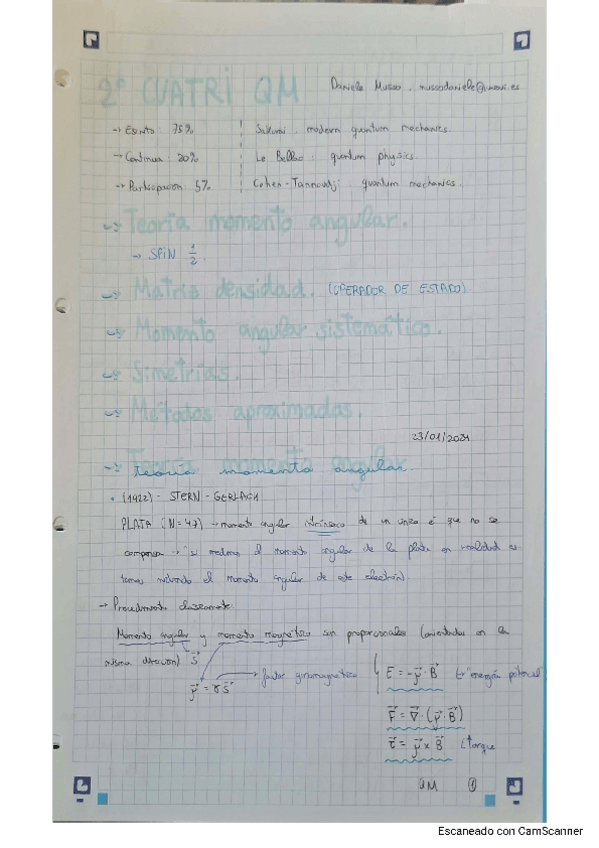 2º CUATRI QM
Daniele Musso . mussodaniele@uniovi.es
→ Escrito : 75%
Sakurai : modern quantum mechanics.
→ Continua : 20%
Le Bellac : quantum physics.
→ Participación : 5%
Cohen-Tannoudji : quantum mechanics.
→ Teoría momento angular.
→ SPIN 1/2.
→ Matriz densidad. (OPERADOR DE ESTADO)
→ Momento angular sistemático.
→ Simetrías.
→ Métodos aproximados.
23/01/2024
→ Teoría momento angular.
• (1922) - STERN - GERLACH
PLATA (N=47) → momento angular intrínseco de un único é que no se
compensa → "si medimos el momento angular de la plata en realidad es-
tamos midiendo el momento angular de este electrón).
→ Procedimiento
Momento angular y momento magnético son proporcionales (orientados en la
misma dirección) S⃗
μ⃗ = γ S⃗ → factor giromagnético
E = -μ⃗ · B⃗ energía potencial
F⃗ = ∇⃗ · (μ⃗ · B⃗)
τ⃗ = μ⃗ x B⃗ torque
QM 1
Escaneado con CamScanner